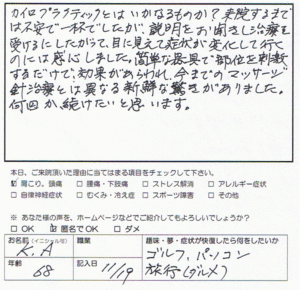 カイロプラクティックとはいかなるものか？来院するまで
は不安で一杯でしたが、説明をお聞きし治療を
受けるにしたがって、目に見えて症状が変化して行く
のには感心しました。簡単な器具で部位を刺激
するだけで、効果があらわれ、今までのマッサージ
針治療とは異なる新鮮な驚きがありました。
何回か、続けたいと思います。
本日、ご来院頂いた理由に当てはまる項目をチェックして下さい。
☑ 肩こり、頭痛 □ 腰痛・下肢痛 □ ストレス解消 □ アレルギー症状
□ 自律神経症状 □ むくみ・冷え症 □ スポーツ障害 □ その他
※ あなた様の声を、ホームページなどでご紹介してもよろしいでしょうか？
□ OK ☑ 匿名でOK □ ダメ
お名前(イニシャル可) K.A 職業
趣味・夢・症状が快復したら何をしたいか
ゴルフ、パソコン
旅行(グルメ)
年齢 68 記入日 11/19